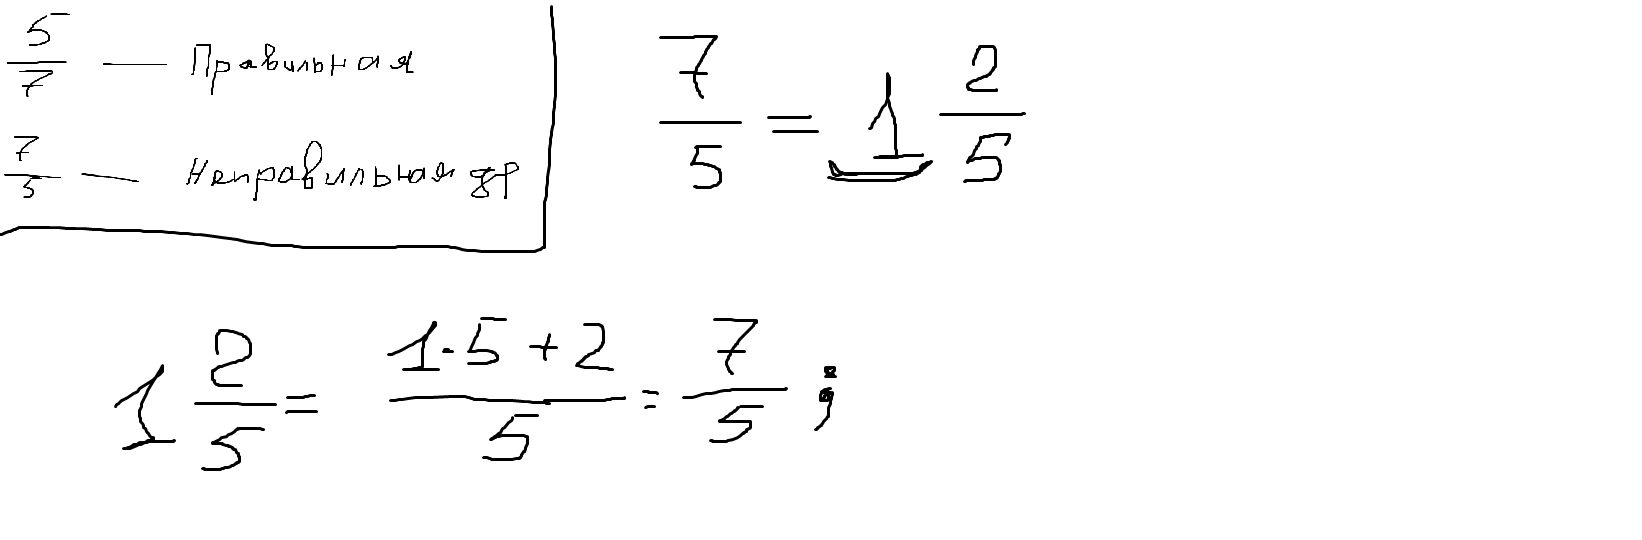 5/7 — Правильная
7/5 — Неправильная др
7/5 = 1 2/5
1 2/5 = (1·5+2)/5 = 7/5 ;